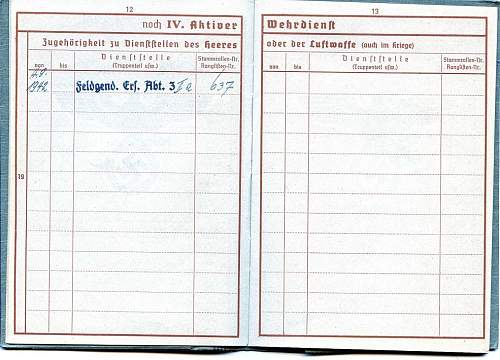 12
noch IV. Aktiver
Zugehörigkeit zu Dienststellen des Heeres
von
bis
Dienststelle
(Truppenteil usw.)
Stammrollen-Nr.
Ranglisten-Nr.
1942
Feldgend. Ers. Abt. 3
637
19
13
Wehrdienst
oder der Luftwaffe (auch im Kriege)
von
bis
Dienststelle
(Truppenteil usw.)
Stammrollen-Nr.
Ranglisten-Nr.